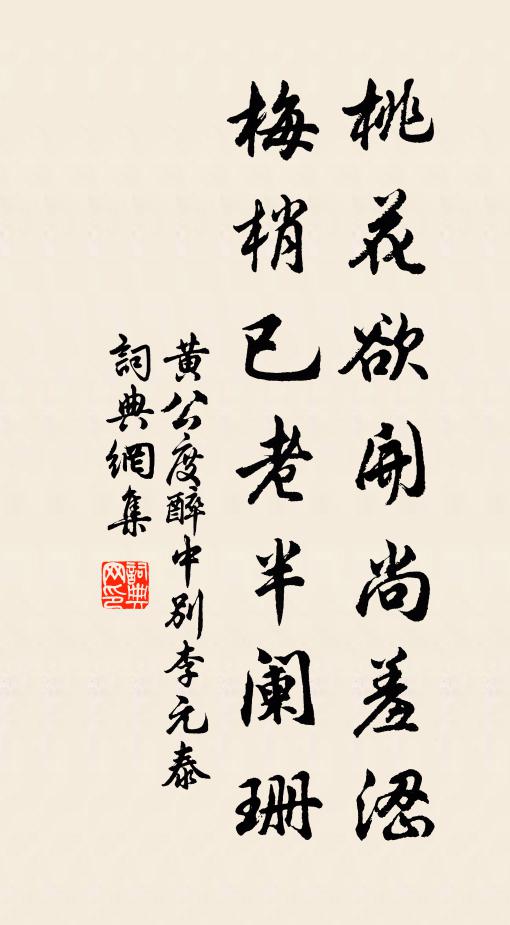 桃花欲開尚羞澀
梅梢已老半闌珊
黄公度醉中別李元泰
詞典網集
詞典网印